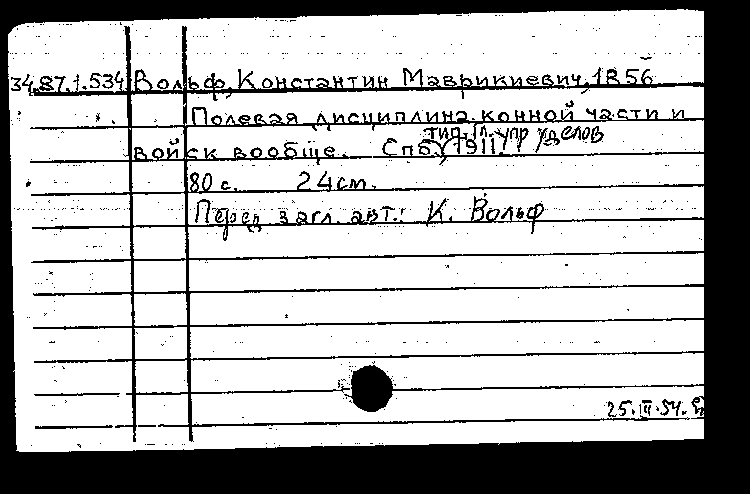 34.87.1.534 Вольф, Константин Маврикиевич, 1856
Полевая дисциплина конной части и
войск вообще. Спб, тип. Гл. упр уделов 1911
80 с. 24 см.
Перед загл. авт.: К. Вольф
25.III.54.